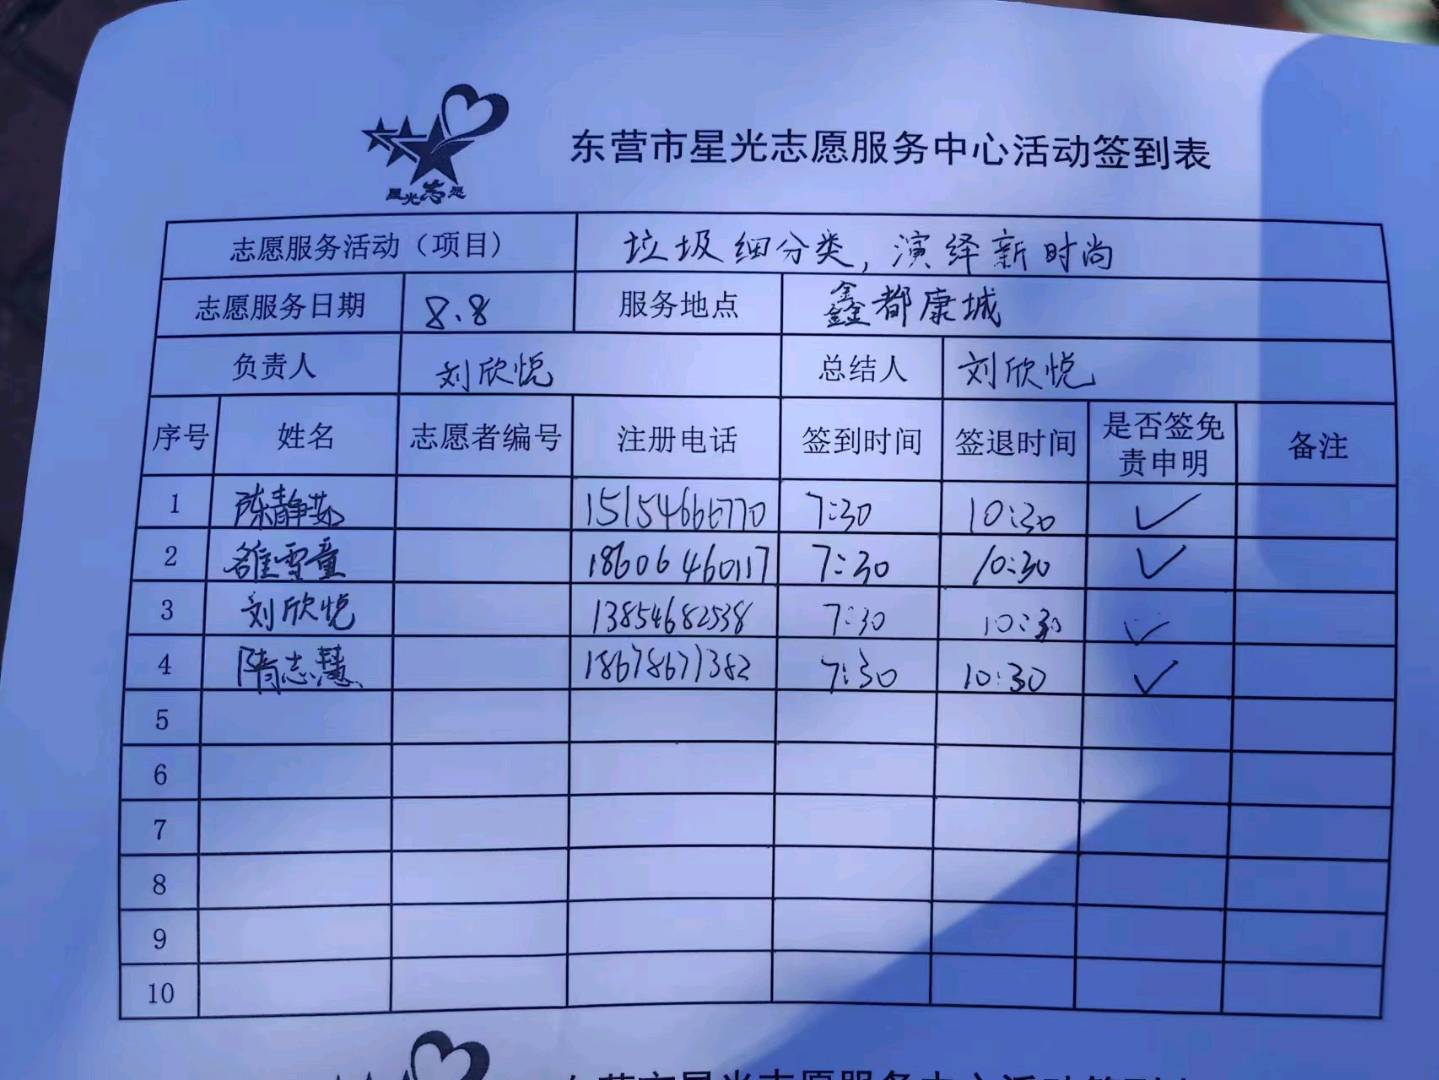 星光志愿
东营市星光志愿服务中心活动签到表
志愿服务活动（项目） 垃圾细分类，演绎新时尚
志愿服务日期 8.8 服务地点 鑫都康城
负责人 刘欣悦 总结人 刘欣悦
序号 姓名 志愿者编号 注册电话 签到时间 签退时间 是否签免责申明 备注
1 陈静茹 15154666770 7:30 10:30 ✓
2 雒雪童 18606460117 7:30 10:30 ✓
3 刘欣悦 13854682538 7:30 10:30 ✓
4 隋志慧 18678671382 7:30 10:30 ✓
5
6
7
8
9
10
东营市星光志愿服务中心活动签到表